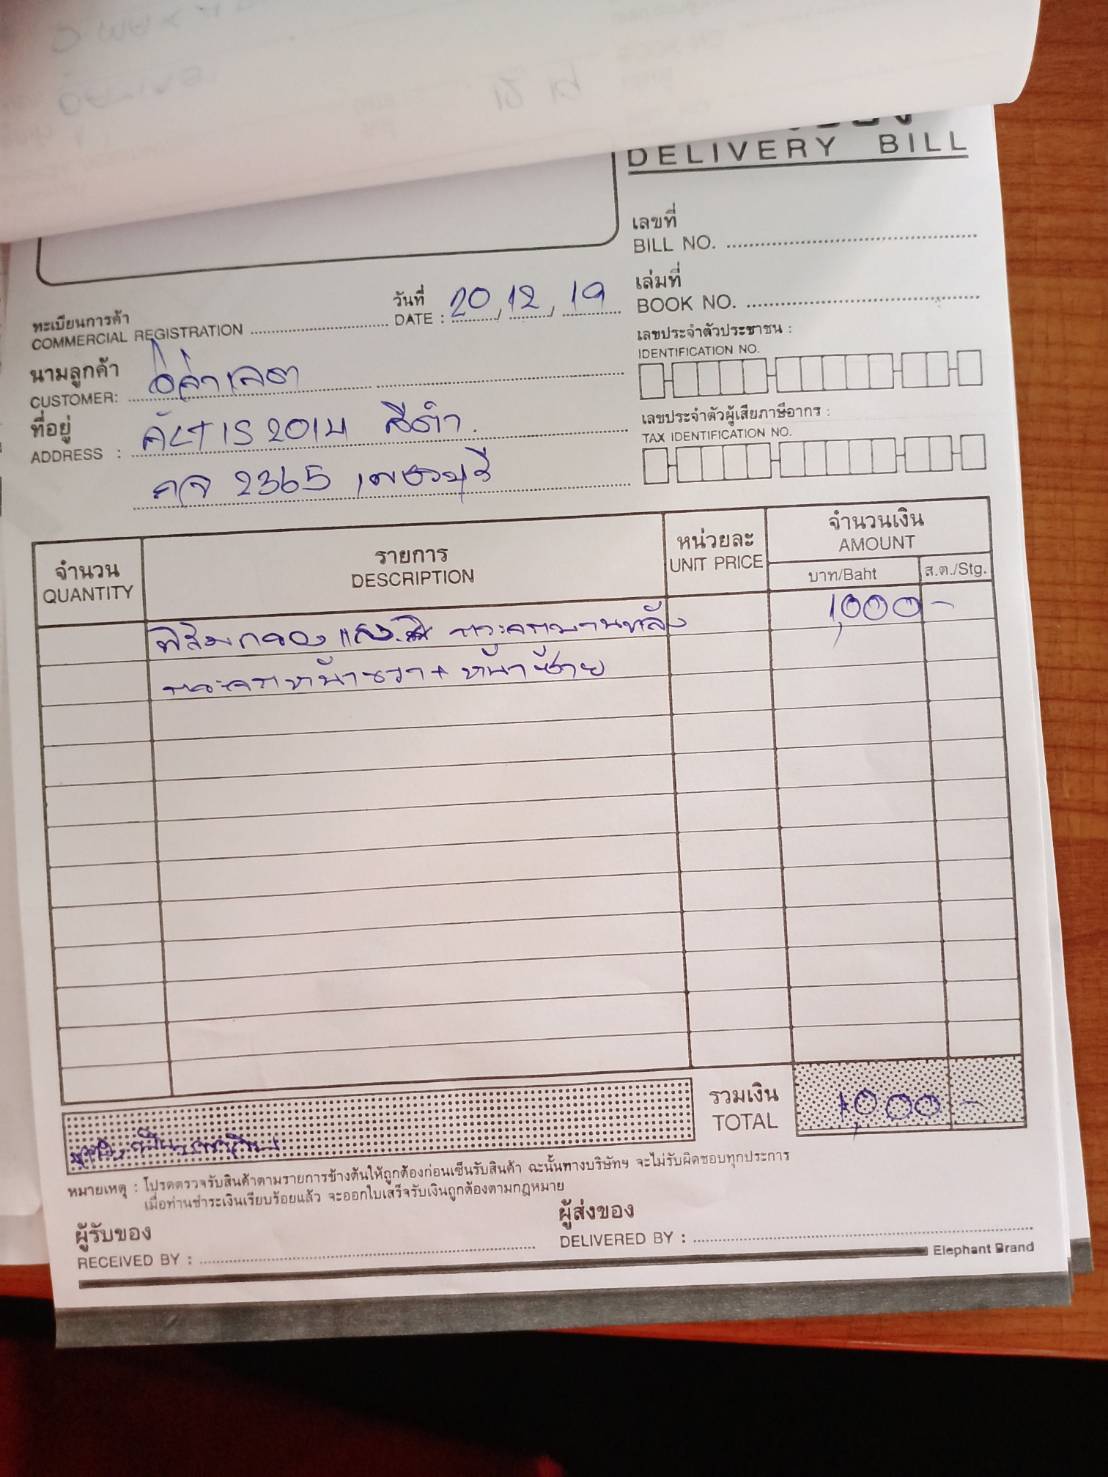 DELIVERY BILL
เลขที่
BILL NO.
เล่มที่
BOOK NO.
ทะเบียนการค้า
COMMERCIAL REGISTRATION
วันที่
DATE : 20, 12, 19
เลขประจำตัวประชาชน :
IDENTIFICATION NO.
นามลูกค้า
CUSTOMER:
ที่อยู่
ADDRESS : ALTIS 2014 สีดำ
กจ 2365 เพชรบุรี
เลขประจำตัวผู้เสียภาษีอากร :
TAX IDENTIFICATION NO.
จำนวน
QUANTITY
รายการ
DESCRIPTION
หน่วยละ
UNIT PRICE
จำนวนเงิน
AMOUNT
บาท/Baht
ส.ต./Stg.
ฟิล์มกรองแสง กระจกบานหลัง 1,000 -
กระจกหน้าขวา + หน้าซ้าย
รวมเงิน
TOTAL
1,000 -
หมายเหตุ : โปรดตรวจรับสินค้าตามรายการข้างต้นให้ถูกต้องก่อนเซ็นรับสินค้า ฉะนั้นทางบริษัทฯ จะไม่รับผิดชอบทุกประการ
เมื่อท่านชำระเงินเรียบร้อยแล้ว จะออกใบเสร็จรับเงินถูกต้องตามกฎหมาย
ผู้รับของ
RECEIVED BY :
ผู้ส่งของ
DELIVERED BY :
Elephant Brand